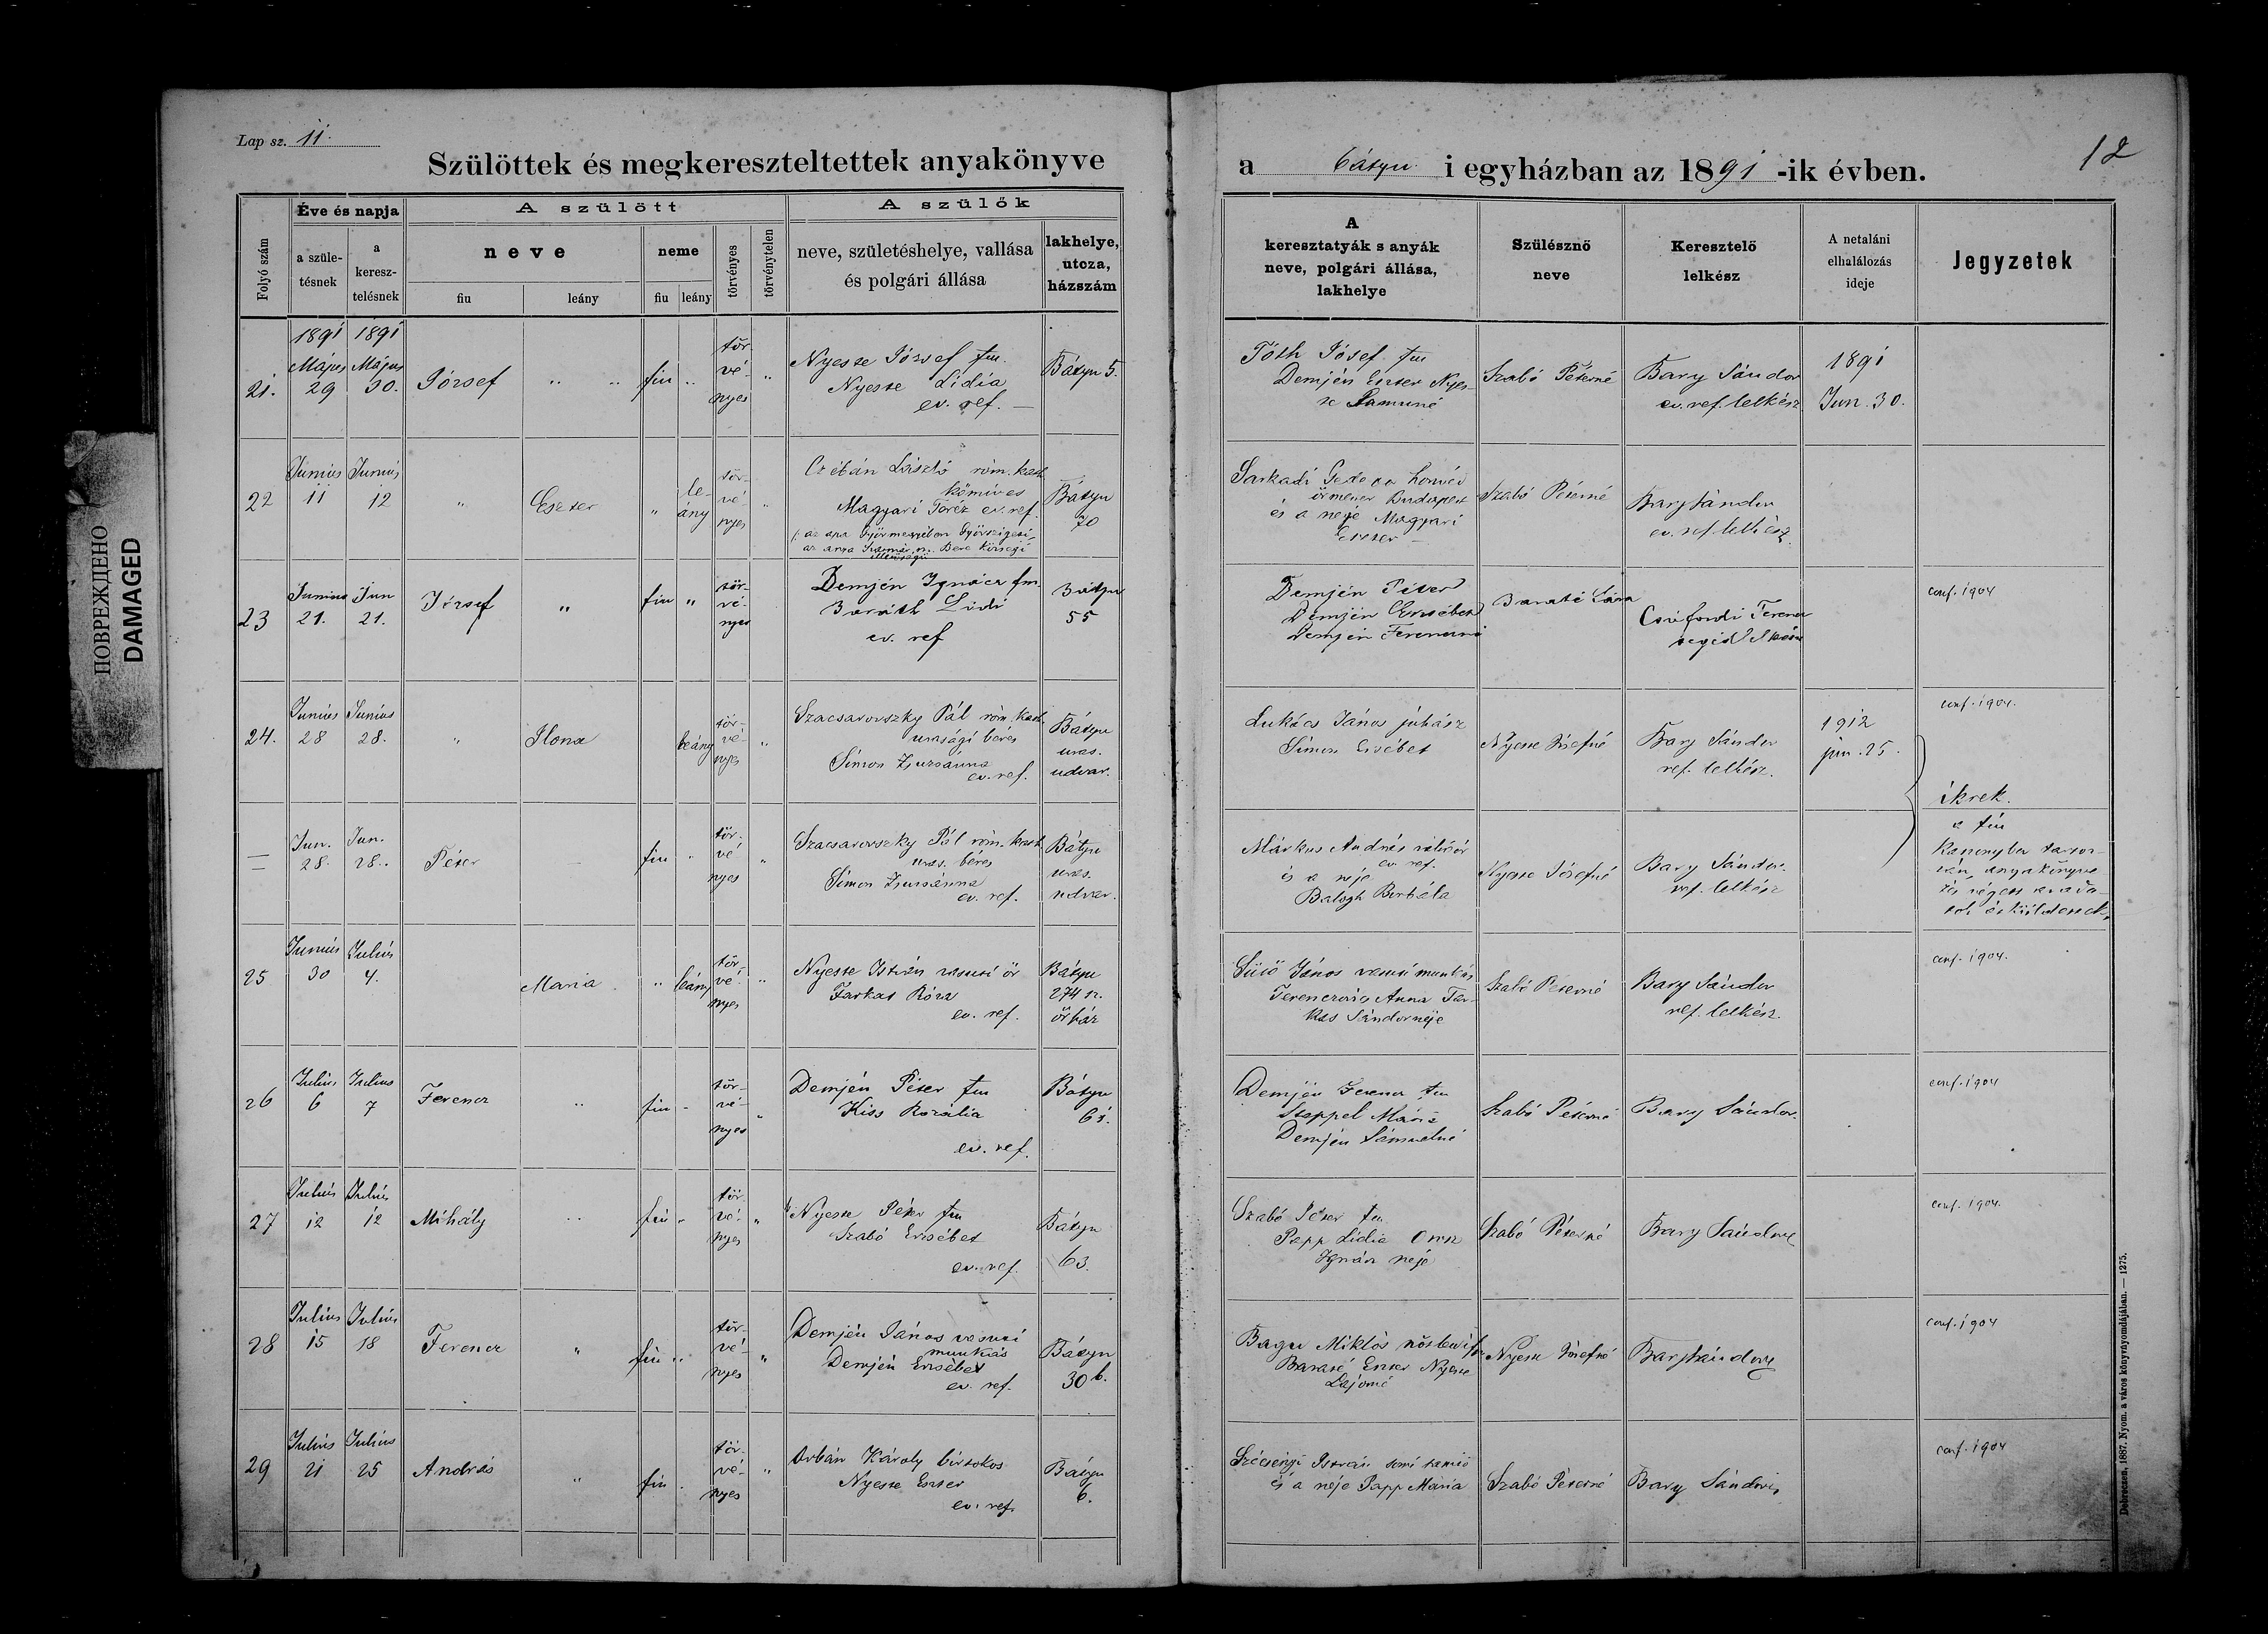 Lap sz. 11.
Szülöttek és megkereszteltettek anyakönyve
a bátyu i egyházban az 1891-ik évben.
12
Folyó szám
Éve és napja
a születésnek
a keresztelésnek
A szülött
neve
fiu
leány
neme
fiu
leány
törvényes
törvénytelen
A szülők
neve, születéshelye, vallása
és polgári állása
lakhelye,
utcza,
házszám
A
keresztatyák s anyák
neve, polgári állása,
lakhelye
Szülésznő
neve
Keresztelő
lelkész
A netaláni
elhalálozás
ideje
Jegyzetek
21.
1891
Május
29
1891
Május
30.
József
" "
fiu
"
tör-
vé-
nyes
"
Nyeste József fm.
Nyeste Lidia
ev. ref. —
Bátyu 5.
Tóth Jósef fm
Demjén Eszter Nyes-
te Samuné
Szabó Péterné
Bary Sándor
ev. ref. lelkész
1891
Jun. 30.
22
Junius
11
Junius
12
"
Eszter
"
le-
ány
tör-
vé-
nyes
"
László róm. kath
kőmives
Magyari Teréz ev. ref.
Bátyu
70
Sarkadi honvéd
őrmester Budapest
és a neje Magyari
Eszter —
Szabó Péterné
Bary Sándor
ev. ref. lelkész
23
Junius
21.
Jun
21.
József
"
fiu
"
tör-
vé-
nyes
Demjén Ignácz fm.
Baráth Lidi
ev. ref
Bátyu
55
Demjén Péter
Demjén Erzsébet
Demjén Ferenczné
Baráté Sára
Ferencz
conf. 1904
24.
Junius
28
Junius
28.
"
Ilona
leány
tör-
vé-
nyes
"
Szacsarovszky Pál róm. kath.
urasági béres
Simon Zsuzsánna
ev. ref.
Bátyu
uras.
udvar.
Lukács János juhász
Simon Erzsébet
Nyeste Józsefné
Bary Sándor
ref. lelkész.
1912
jun. 25.
conf. 1904.
ikrek.
—
Jun.
28.
Jun.
28.
Péter
—
fiu
"
tör-
vé-
nyes
"
Szacsarovszky Pál róm. kath
uras. béres
Simon Zsuzsánna
ev. ref.
Bátyu
uras.
udvar.
Márkus András
ev. ref.
és a neje
Balogh Borbála
Nyeste Józsefné
Bary Sándor
ref. lelkész
a fiu
25
Junius
30
Julius
4.
Maria
"
leány
tör-
vé-
nyes
"
Nyeste István vasuti őr
Farkas Róza
ev. ref.
Bátyu
274 sz.
őrház
Sütő János vasuti munkás
Ferenczvia Anna Far-
kas Sándor neje
Szabó Péterné
Bary Sándor
ref. lelkész.
conf. 1904.
26
Julius
6
Julius
7
Ferencz
"
fiu
"
tör-
vé-
nyes
"
Demjén Péter fm
Kiss Rozália
ev. ref.
Bátyu
61.
Demjén Ferencz fm
Steppel Mária
Demjén Sámuelné
Szabó Péterné
Bary Sándor
conf. 1904
27
Julius
12
Julius
12
Mihály
"
fiu
"
tör-
vé-
nyes
"
Nyeste Péter fm
Szabó Erzsébet
ev. ref.
Bátyu
63.
Szabó Péter fm
Papp Lidia Orosz
Ignácz neje
Szabó Péterné
Bary Sándor
conf. 1904.
28
Julius
15
Julius
18
Ferencz
"
fiu
"
tör-
vé-
nyes
"
Demjén János vasuti
munkás
Demjén Erzsébet
ev. ref.
Bátyu
30 b.
Bagu Miklós
Baráté Eszter Nyeste
Lajosné
Nyeste Józsefné
Bary Sándor
conf. 1904
29
Julius
21
Julius
25
András
"
fiu
tör-
vé-
nyes
"
Orbán Károly birtokos
Nyeste Eszter
ev. ref.
Bátyu
6.
Szécsenyi István tanitó
és a neje Papp Mária
Szabó Péterné
Bary Sándor
conf. 1904
Debreczen, 1887. Nyom. a város könyvnyomdájában. — 1275.
ПОВРЕЖДЕНО
DAMAGED